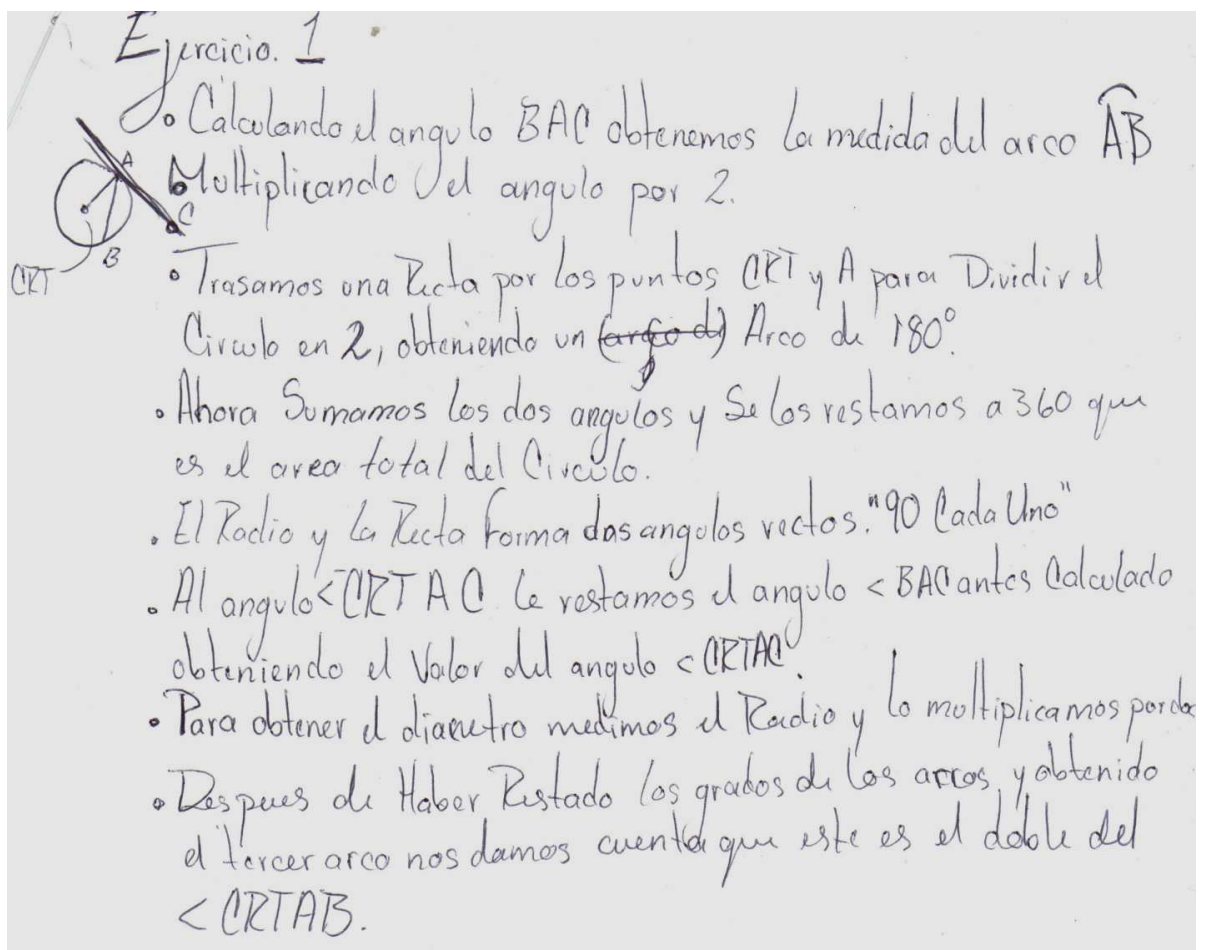 Ejercicio. 1
• Calculando el angulo BAC obtenemos la medida del arco AB
• Multiplicando el angulo por 2.
A
C
B
CRT
• Trasamos una Recta por los puntos CRT y A para Dividir el
Circulo en 2, obteniendo un (arco d) Arco de 180°.
• Ahora Sumamos los dos angulos y Se los restamos a 360 que
es el area total del Circulo.
• El Radio y la Recta forma dos angulos rectos. "90 Cada Uno"
• Al angulo <CRT A C le restamos el angulo < BAC antes Calculado
obteniendo el Valor del angulo < CRTAC.
• Para obtener el diametro medimos el Radio y lo multiplicamos por dos
• Despues de Haber Restado los grados de los arcos, y obtenido
el tercer arco nos damos cuenta que este es el doble del
< CRTAB.